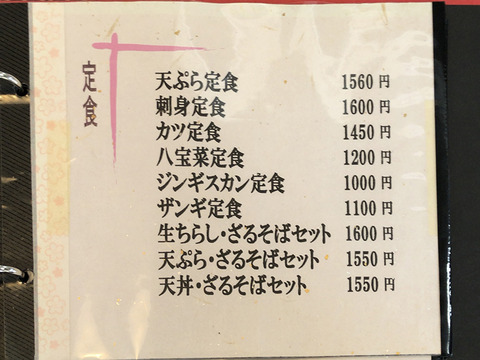 定食
天ぷら定食 1560円
刺身定食 1600円
カツ定食 1450円
八宝菜定食 1200円
ジンギスカン定食 1000円
ザンギ定食 1100円
生ちらし・ざるそばセット 1600円
天ぷら・ざるそばセット 1550円
天丼・ざるそばセット 1550円